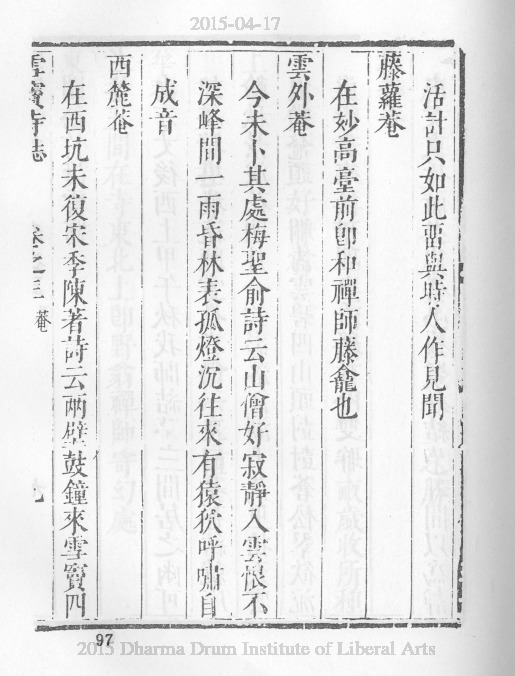 2015-04-17
活計只如此畱與時人作見聞
藤蘿菴
在妙高臺前卽和禪師藤龕也
雲外菴
今未卜其處梅聖俞詩云山僧好寂靜入雲恨不
深峰間一雨昏林表孤燈沉往來有猿狖呼嘯自
成音
西麓菴
在西坑未復宋季陳著詩云兩壁鼓鐘來雪竇四
雪竇寺誌 卷之三 菴 九
97
2015 Dharma Drum Institute of Liberal Arts